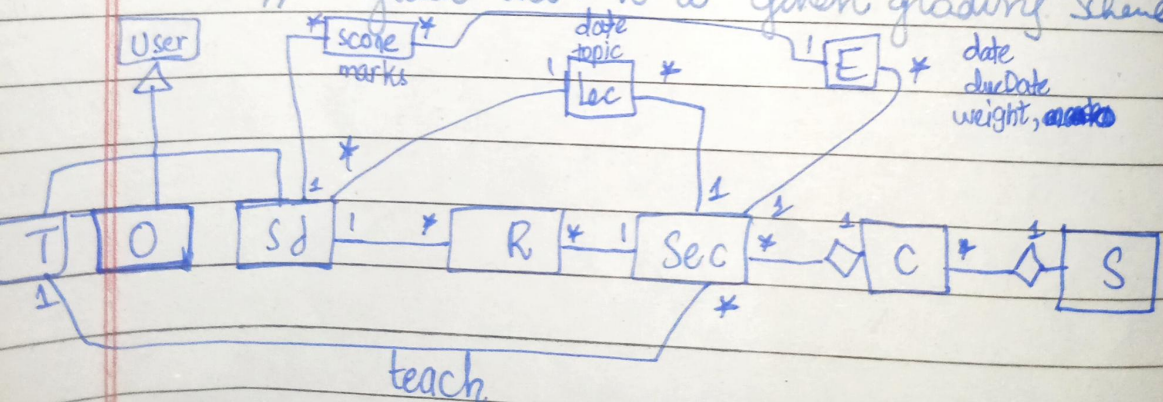 given grading scheme
User
* score *
marks
date
topic
1 Lec *
1 E *
date
dueDate
weight,
*
1
1
1
T O Sd 1 * R * 1 Sec * 1 C * 1 S
1
*
teach